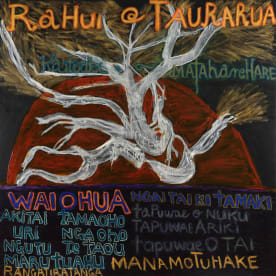 RaHui @ TAURARUA
MATAHAReHARE
WAIOHUA NGAI TAI KI TAMAKI
AKITAI TAMAOHO tapuwae o NUKU
URI NGAOHO TAPUWAE ARIKI
NGUTU, TE TAOU tapuwae O TAI
MARUTUAHU MANAMOTUHAKE
RANGATIRATANGA